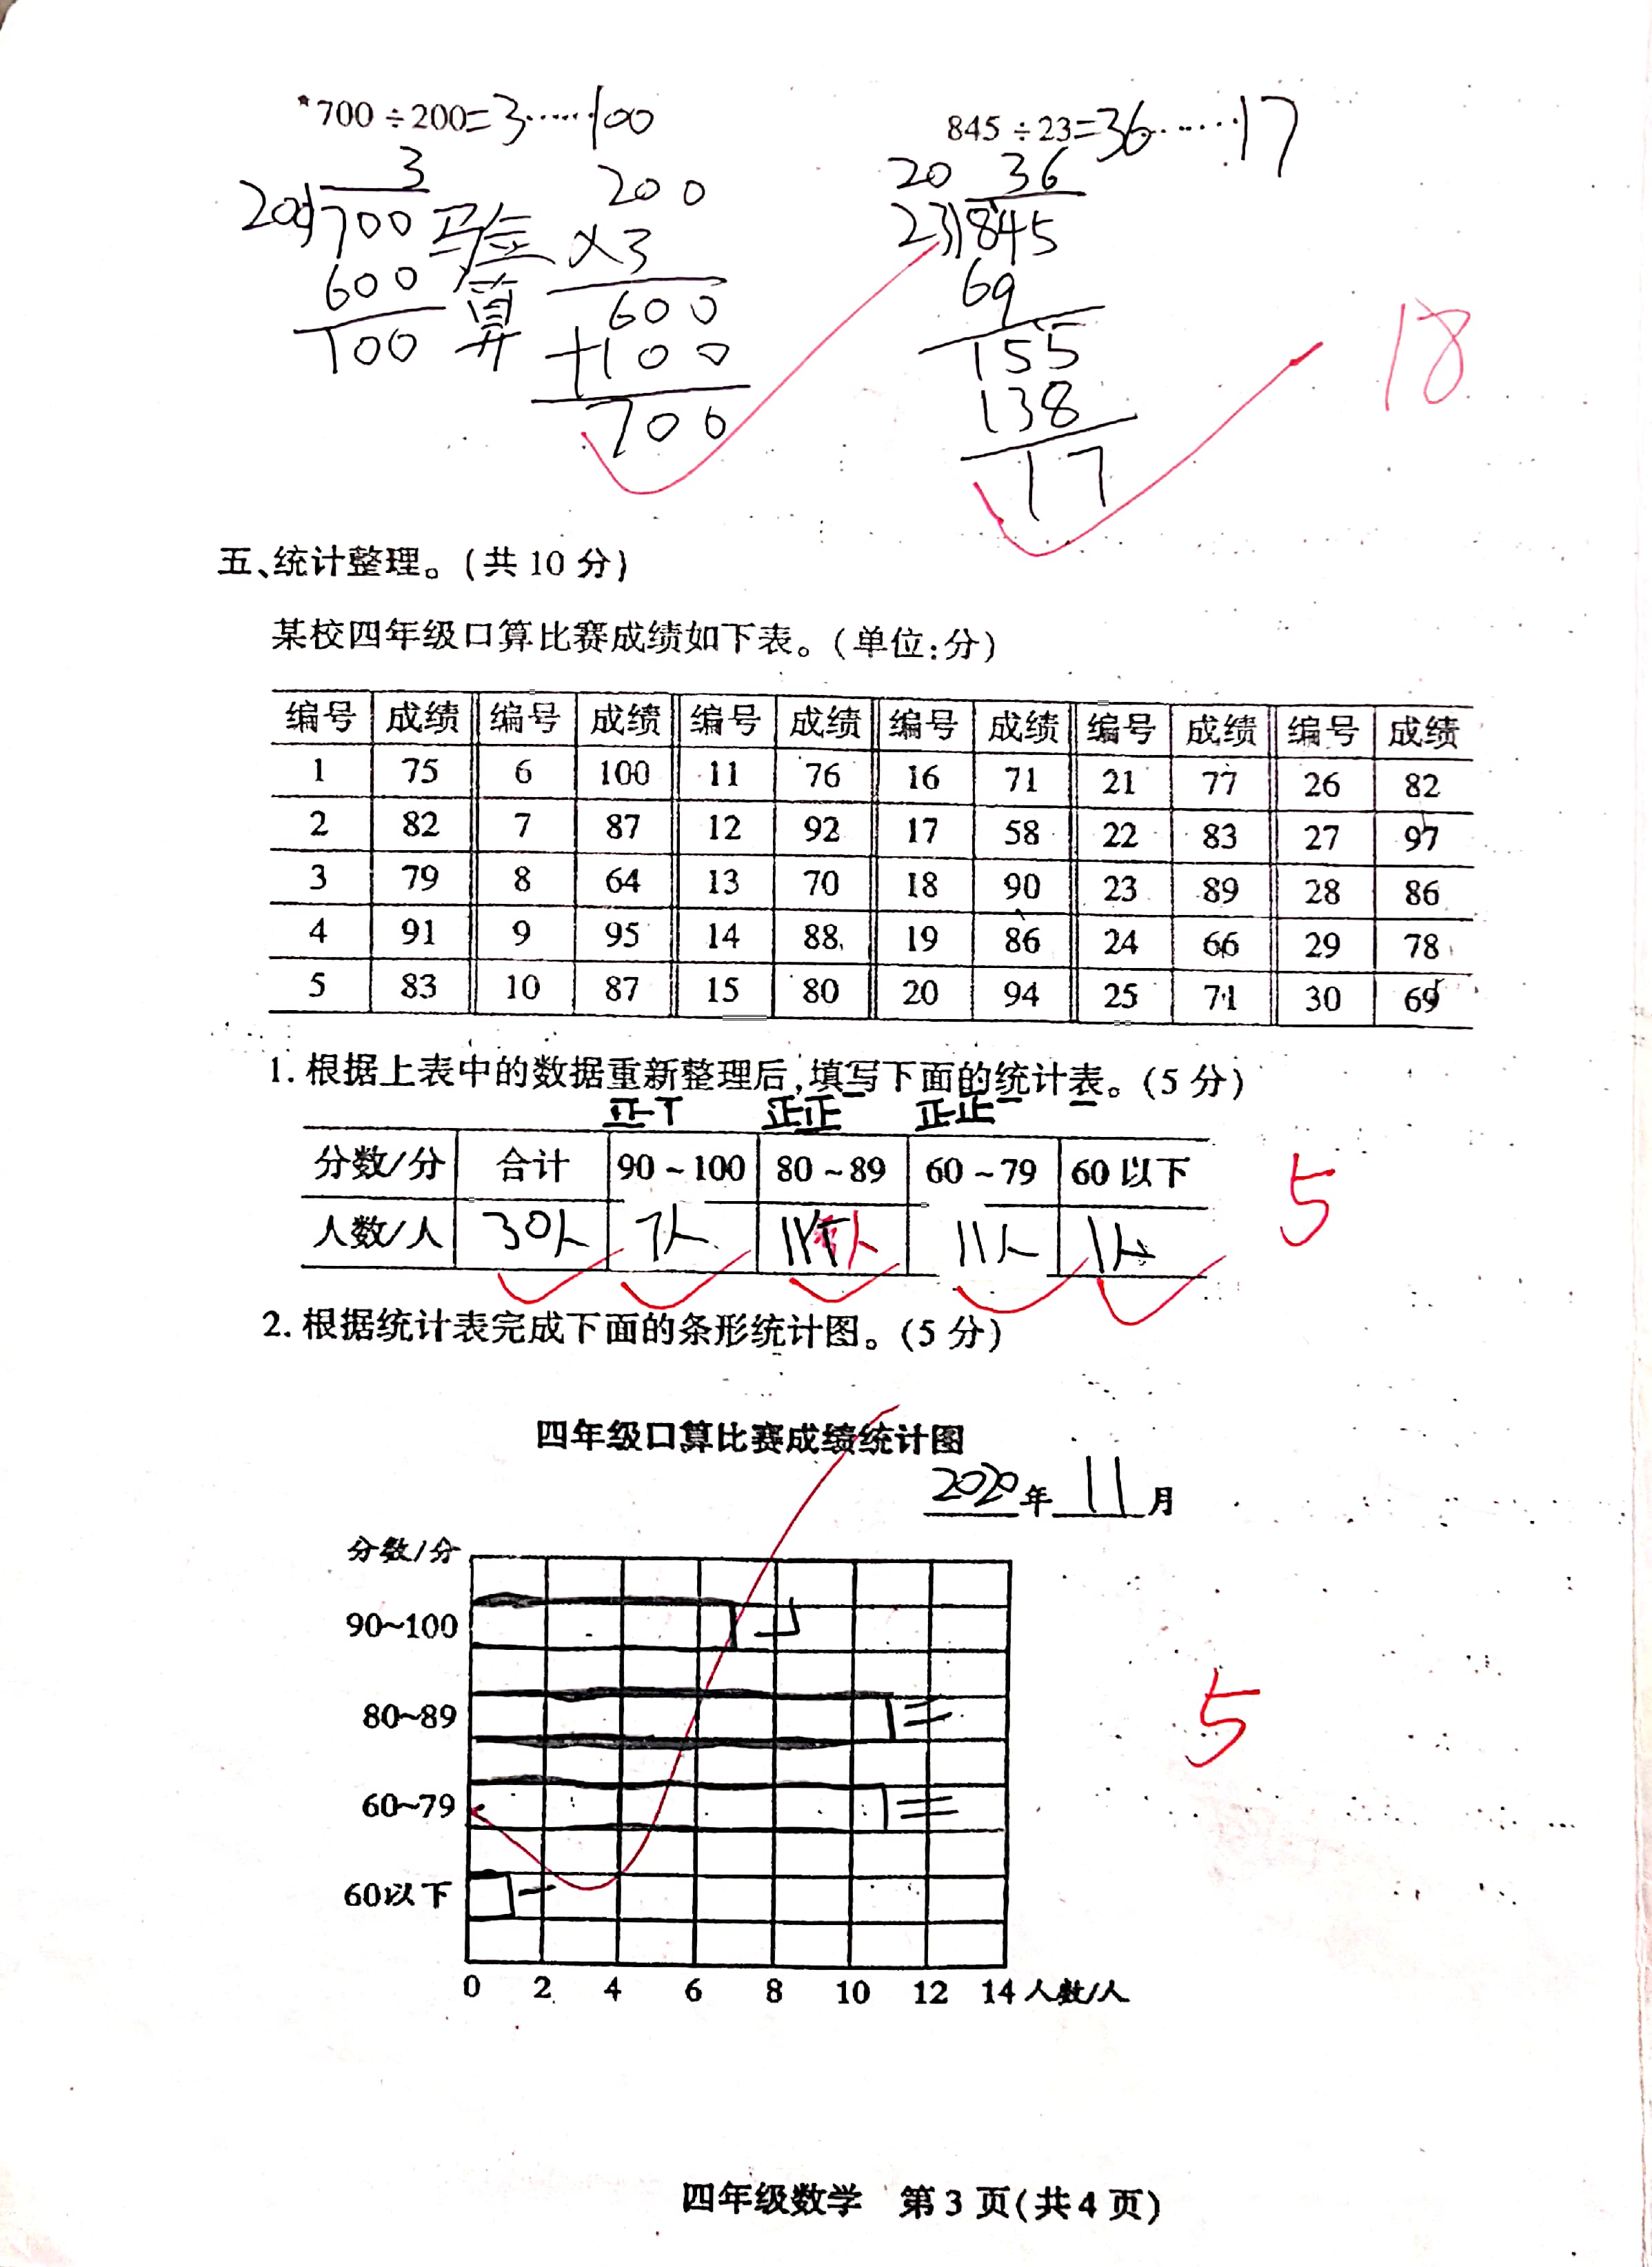 *700÷200=3……100
845÷23=36……17
3
200)700
600
100
验算
200
×3
600
+100
700
20 36
23)845
69
155
138
17
18
五、统计整理。(共10分)
某校四年级口算比赛成绩如下表。(单位:分)
编号 成绩 编号 成绩 编号 成绩 编号 成绩 编号 成绩 编号 成绩
1 75 6 100 11 76 16 71 21 77 26 82
2 82 7 87 12 92 17 58 22 83 27 97
3 79 8 64 13 70 18 90 23 89 28 86
4 91 9 95 14 88 19 86 24 66 29 78
5 83 10 87 15 80 20 94 25 71 30 69
1.根据上表中的数据重新整理后,填写下面的统计表。(5分)
正丅 正正一 正正一 一
分数/分 合计 90~100 80~89 60~79 60以下
人数/人 30人 7人 11人 11人 1人
5
2.根据统计表完成下面的条形统计图。(5分)
四年级口算比赛成绩统计图
2020年11月
分数/分
90~100
80~89
60~79
60以下
0 2 4 6 8 10 12 14 人数/人
5
四年级数学 第3页(共4页)